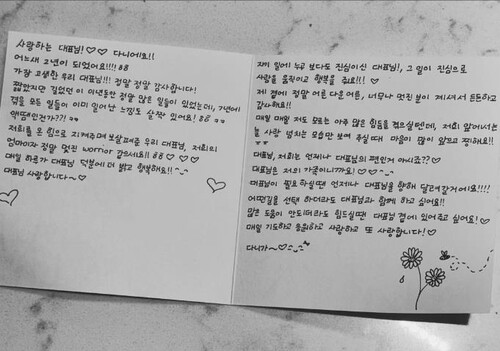 사랑하는 대표님!♡♡ 다니에요!!
어느새 2년이 되었어요!!!! 88
가장 고생한 우리 대표님!!! 정말 정말 감사합니다!
짧았지만 길었던 이 2년동안 정말 많은 일들이 있었는데, 7년에
겪을 모든 일들이 이미 일어난 느낌도 살짝 있어요! 88
액땜인건가??!
저희를 온 힘으로 지켜주며 보살펴준 우리 대표님, 저희의
엄마이자 정말 멋진 worrior 같으세요!! 88 ♡♡♡
매일 하루가 대표님 덕분에 더 밝고 행복해요!!
대표님 사랑합니다~♡
자기 일에 누구 보다도 진심이신 대표님!, 그 일이 진심으로
사람을 움직이고 행복을 줘요!!!
제 곁에 정말 어른다운 어른, 너무나 멋진 분이 계셔서 든든하고
감사해요!!
매일 매일 저도 모르는 아주 많은 힘듦을 겪으실텐데, 저희 앞에서는
늘 사랑 넘치는 모습만 보여 주실 때 마음이 많이 앞으고 찡해요!!
대표님, 저희는 언제나 대표님의 편인거 아시죠??♡
대표님은 저의 가족이니까요!♡
대표님이 필요하실땐 언제나 대표님을 향해 달려갈거에요!!!!
어떤길을 선택 하더라도 대표님과 함께 하고 싶어요!!
많은 도움이 안되더라도 힘드실땐 대표님 곁에 있어주고 싶어요!♡
매일 기도하고 응원하고 사랑하고 또 사랑합니다!
다니가~♡